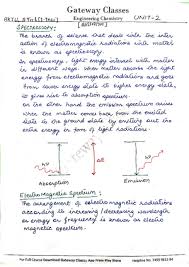 Gateway Classes
Engineering Chemistry
UNIT-2
Spectroscopy:
The branch of science that deals with the inter
action of electromagnetic radiations with matter
is known as spectroscopy.
In spectroscopy, light energy interact with matter
in different ways. When matter absorb the light
energy from electromagnetic radiations and goes
from lower energy state to higher energy state,
it gives rise to absorption spectrum.
On the other hand the emission spectrum arises
when the matter comes back from the excited
state to the ground state by emitting out the
extra energy in form of light radiations.
Absorption
Emission
Electromagnetic Spectrum:
The arrangement of electromagnetic radiations
according to increasing/decreasing wavelength
or energy or frequency is known as electro
magnetic spectrum.
For Full Course Download Gateway Classes App From Play Store